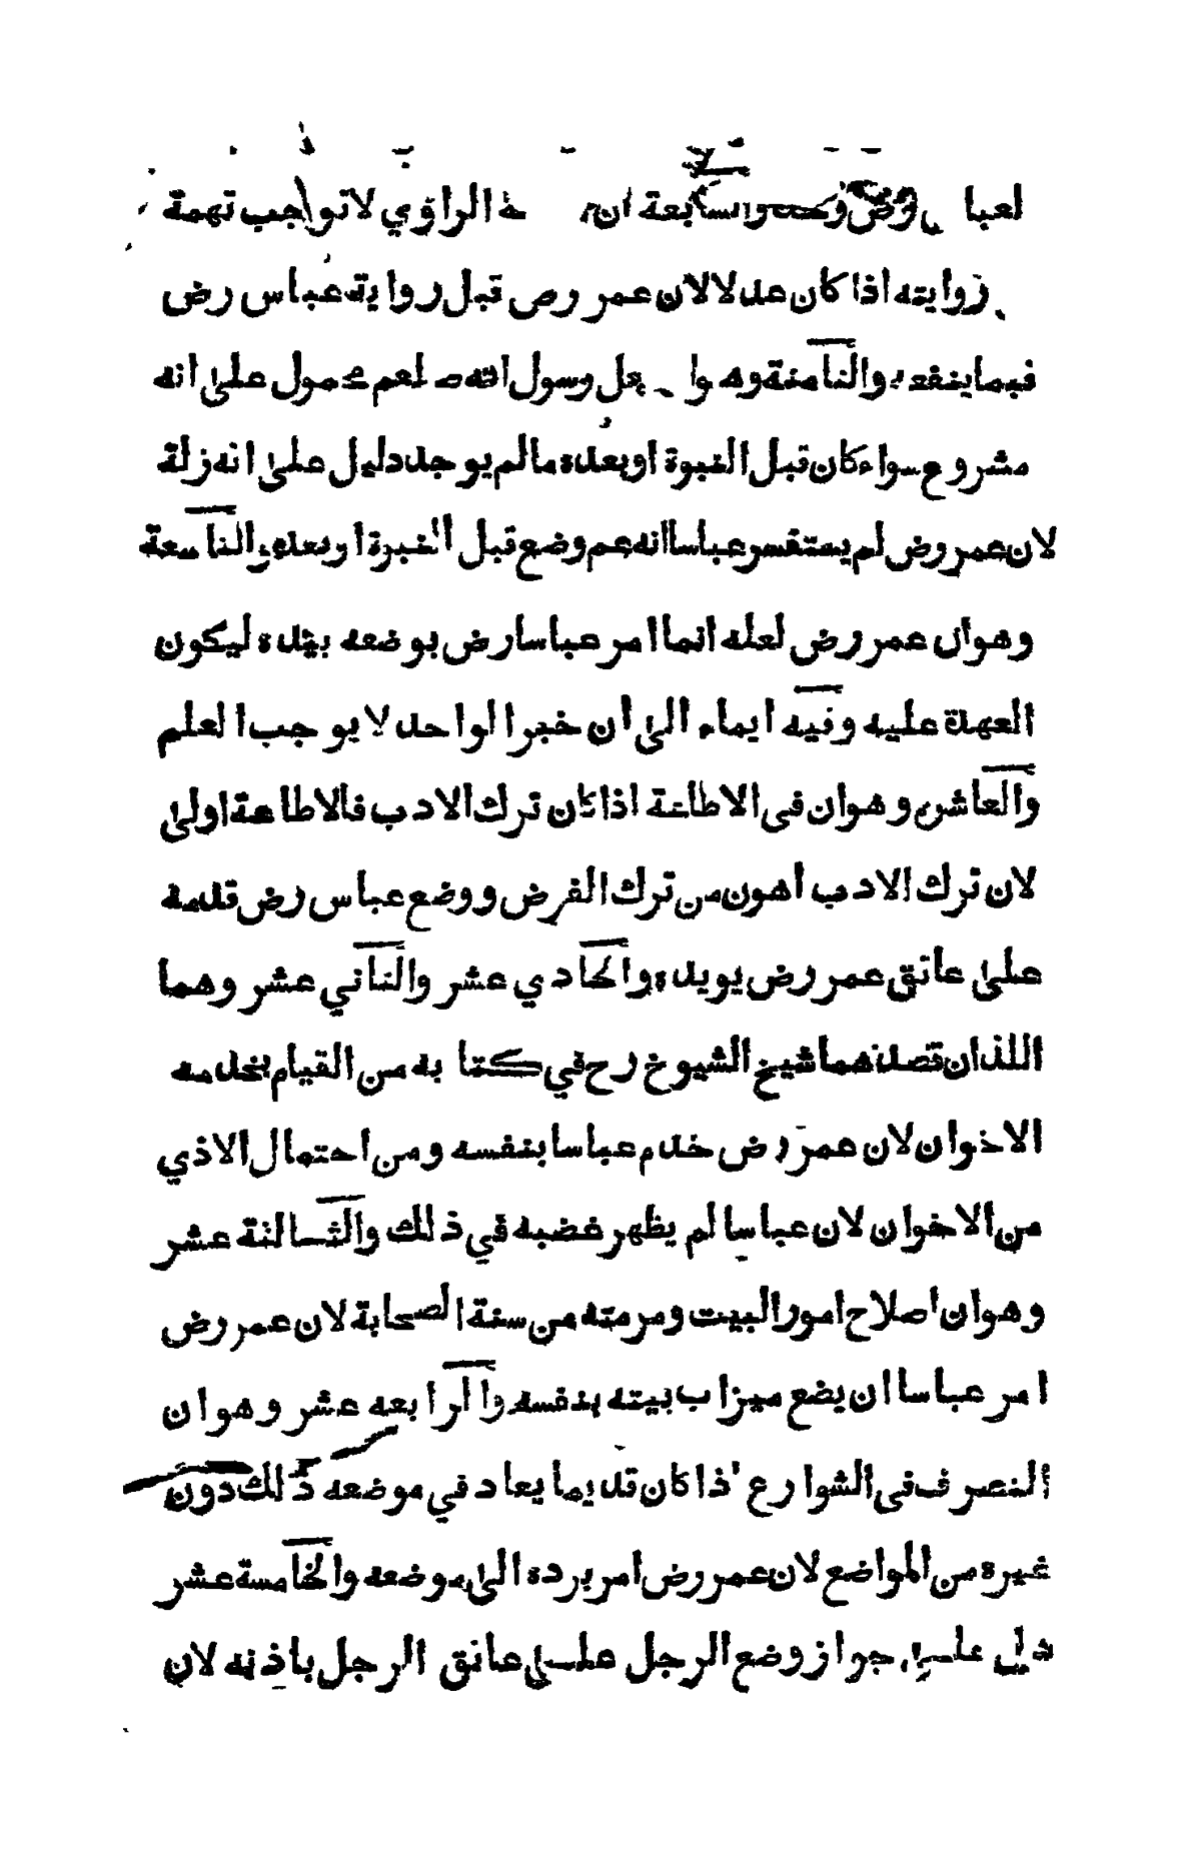 لعبا رض والسابعة ان الراوي لا تواجب تهمة
روايته اذا كان عدلا لان عمر رض قبل رواية عباس رض
فيما ينفعه والثامنة وهوا رسول الله صلعم محمول على انه
مشروع سواء كان قبل النبوة او بعده مالم يوجد دليل على انه زلة
لان عمر رض لم يستفسر عباسا انه عم وضع قبل النبوة او بعده والتاسعة
وهوان عمر رض لعله انما امر عباسا رض بوضعه بيده ليكون
العهدة عليه وفيه ايماء الى ان خبر الواحد لا يوجب العلم
والعاشر وهوان في الاطاعة اذا كان ترك الادب فالاطاعة اولى
لان ترك الادب اهون من ترك الفرض ووضع عباس رض قدمه
على عاتق عمر رض يويده والحادي عشر والثاني عشر وهما
اللذان قصدهما شيخ الشيوخ رح في كتابه من القيام بخدمه
الاخوان لان عمر رض خدم عباسا بنفسه ومن احتمال الاذي
من الاخوان لان عباسا لم يظهر غضبه في ذلك والثالثة عشر
وهوان اصلاح امور البيت ومرمته من سنة الصحابة لان عمر رض
امر عباسا ان يضع ميزاب بيته بنفسه والرابعه عشر وهوان
التصرف في الشوارع اذا كان قديما يعاد في موضعه ذلك دون
غيره من المواضع لان عمر رض امر برده الى موضعه والخامسة عشر
دليل على جواز وضع الرجل على عاتق الرجل باذنه لان